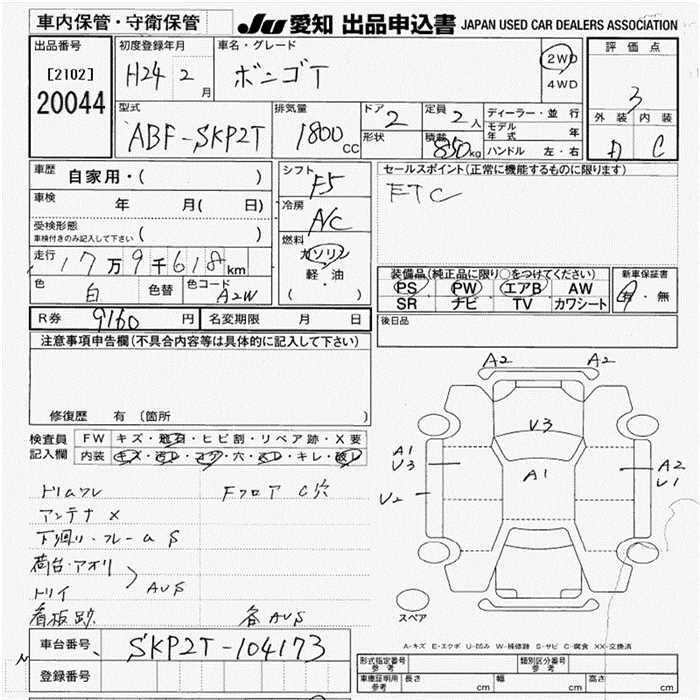 車内保管・守衛保管
JU 愛知 出品申込書 JAPAN USED CAR DEALERS ASSOCIATION
出品番号
[2102]
20044
初度登録年月
H24 2月
車名・グレード
ボンゴT
2WD
4WD
評価点
3
外装 内装
A C
型式
ABF-SKP2T
排気量
1800cc
ドア 2
形状
定員 2人
積載 850kg
ディーラー・並行
モデル年式 年
ハンドル 左・右
車歴 自家用・( )
車検 年 月( 日)
受検形態
車検付きのみ記入して下さい ( )
走行 17万9千618km
色 白 色替 色コード A2W
シフト F5
冷房 A/C
燃料
ガソリン
軽・油
( )
セールスポイント(正常に機能するものに限ります)
ETC
装備品(純正品に限り○をつけてください)
PS PW エアB AW
SR ナビ TV カワシート
新車保証書
有・無
R券 9160円 名変期限 月 日
後日品
注意事項申告欄(不具合内容等は具体的に記入して下さい)
修復歴 有(箇所 )
検査員
記入欄
FW キズ・飛石・ヒビ割・リペア跡・X要
内装 キズ・汚レ・コゲ・穴・スレ・キレ・破レ
トリムワレ Fフロア C穴
アンテナ X
下廻リ・フレーム S
荷台・アオリ
トリイ AUS
看板跡 各AUS
A2 A2
V3
A1
A1
V3
U2
A2
U1
スペア
A-キズ E-エクボ U-凹み W-補修跡 S-サビ C-腐食 XX-交換済
車台番号 SKP2T-104173
登録番号
形式指定番号 参考
類別区分番号 参考
車庫証明用 参考 長さ cm 幅 cm 高さ cm